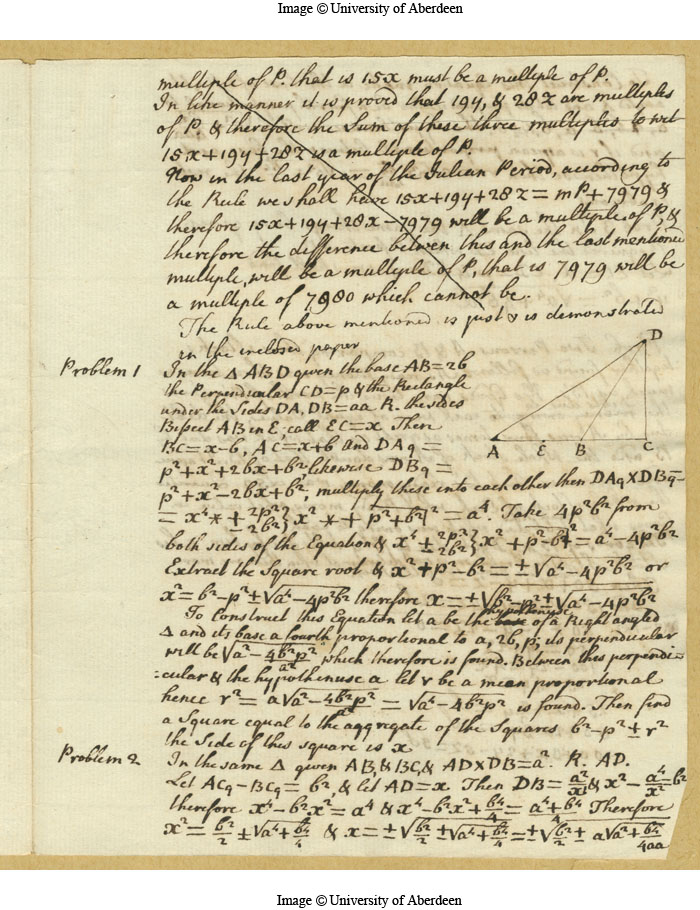 Image © University of Aberdeen
multiple of P. that is 15x must be a multiple of P.
In like manner it is proved that 19y, & 28z are multiples
of P. & therefore the Sum of these three multiples to wit
15x+19y+28z is a multiple of P.
Now in the last year of the Julian Period, according to
the Rule we shall have 15x+19y+28z = mP+7979 &
therefore 15x+19y+28x−7979 will be a multiple of P, &
therefore the difference between this and the last mentioned
multiple, will be a multiple of P, that is 7979 will be
a multiple of 7980 which cannot be.
The Rule above mentioned is just & is demonstrated
in the inclosed paper
Problem 1 In the Δ ABD given the base AB=2b
the Perpendicular CD=p & the Rectangle
under the Sides DA, DB=aa R. the sides
Bissect AB in E; call EC=x Then
BC=x−b, AC=x+b and DAq =
p²+x²+2bx+b², likewise DBq =
p²+x²−2bx+b², multiply these into each other then DAq×DBq=
= x⁴ * ± 2p² 2b²} x² * + p²+b²|² = a⁴. Take 4p²b² from
both sides of the Equation & x⁴ ± 2p² 2b²} x² + p²−b²|² = a⁴−4p²b²
Extract the Square root & x²+p²−b² = ±√a⁴−4p²b² or
x²=b²−p²±√a⁴−4p²b² therefore x=±√b²−p²±√a⁴−4p²b²
To Construct this Equation let a be the hypothenuse of a Right angled
Δ and its base a fourth proportional to a, 2b, p; its perpendicular
will be √a²−4b²p²/a² which therefore is found. Between this perpendi-
-cular & the hypothenuse a let r be a mean proportional
hence r² = a√a²−4b²p²/a² = √a⁴−4b²p² is found. Then find
a Square equal to the aggregate of the Squares b²−p²±r²
the Side of this square is x
Problem 2 In the same Δ given AB, & BC, & AD×DB=a². R. AD.
Let ACq−BCq = b², & let AD=x Then DB=a²/x & x²−a⁴/x²=b²
therefore x⁴−b²x²=a⁴ & x⁴−b²x²+b⁴/4=a⁴+b⁴/4 Therefore
x²=b²/2±√a⁴+b⁴/4 & x=±√b²/2±√a⁴+b⁴/4=±√b²/2± a√a²+b⁴/4aa
D
A E B C
Image © University of Aberdeen